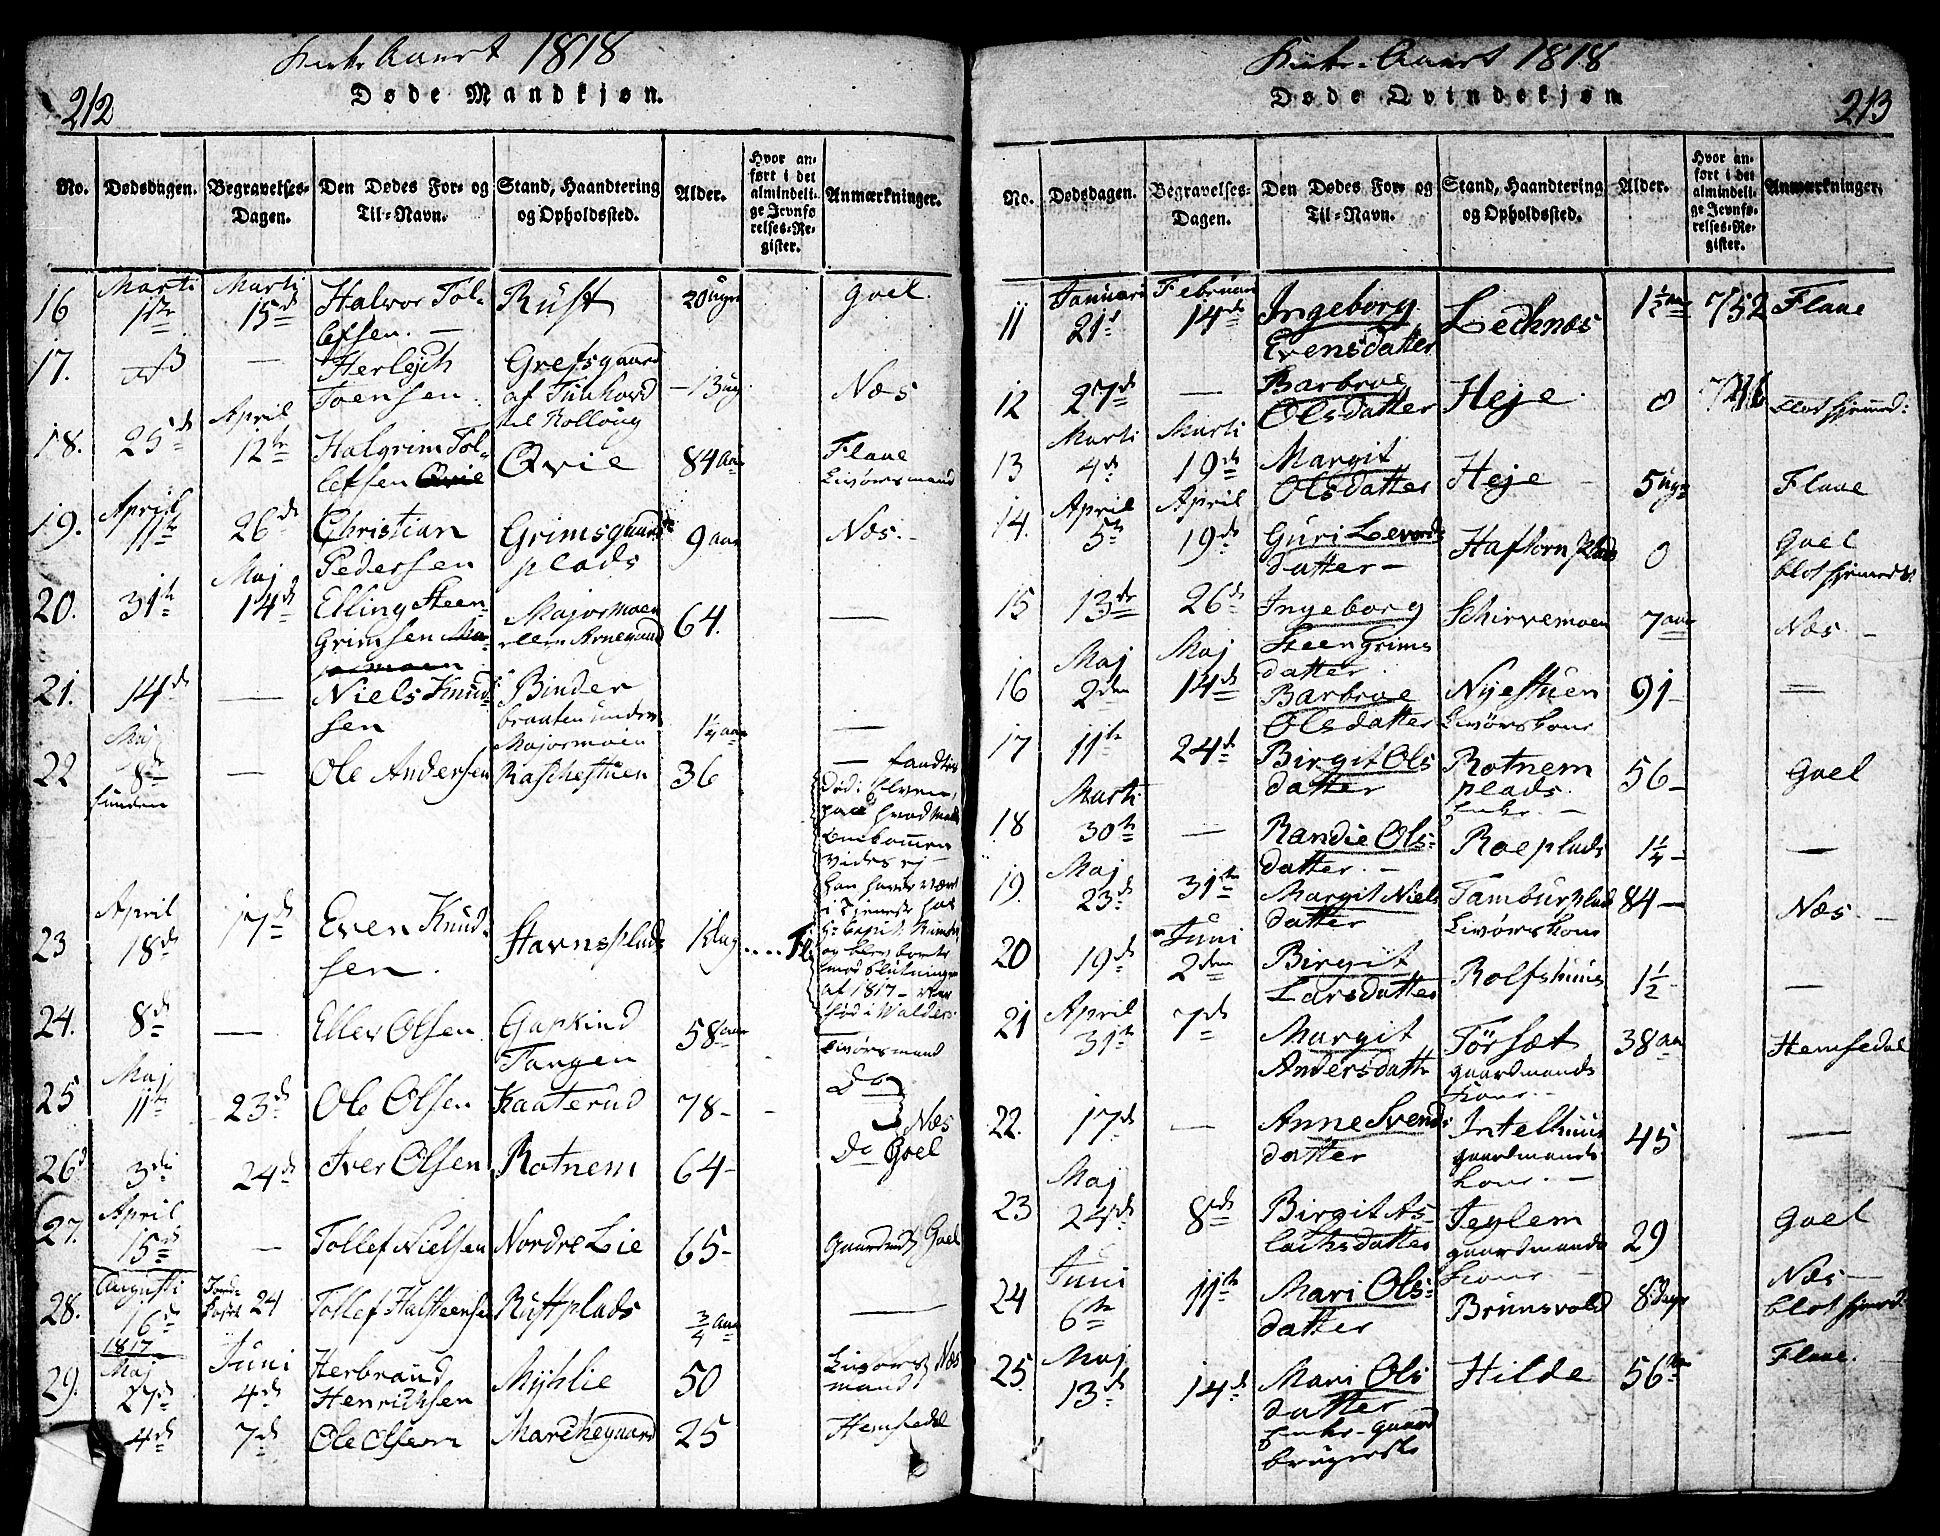 Kirke Aaret 1818
212
Døde Mandkjøn.
No. Dødsdagen. Begravelses-Dagen. Den Dødes For- og Til-Navn. Stand, Haandtering og Opholdssted. Alder. Hvor anført i det almindelige Jevnførelses-Register. Anmærkninger.
16 Marti 1ste Marti 15d Halvor Tollefsen. Rust 20 ugr Goel.
17. — Herlejch Toensen Grefsgaard af Tunhovd til Rolloug 13 ug Næs
18. 25d April 12te Halgrim Tollefsen Qvie Qvie 84 aar Flaae Livørsmand
19. April 11te 26d Christian Pedersen Grimsgaards plads 9 aar Næs.
20. 31te Maj 14d Elling Steengrimsen Majormoen 64. —
21. 14d — Niels Knudsen Binderbraaten under Majormoen 1¼ aar —
22 Maj 8d funden — Ole Andersen Raschestuen 36 — fandtes død i Elven, paa hvad Maade omkommen vides ej
han havde været i Tjeneste hos
og blev borte mod Slutningen af 1817 —
fød i Walders
23 April 18d 17d Even Knudsen. Stavnsplads
24. 8d — Eller Olsen Garkind Tangen 58 aar Livørsmand
25 Maj 11te 23d Ole Olsen Kaaterud 78 - Do Næs
26 3di 24d Iver Olsen Rotnem 64 - Do Goel
27. April 15d — Tollef Nielsen Nordre Lie 65 - Gaardmd Goel
28. Augusti 16d 1817 24 Tollef Halsteensen Rustplads ¾ aar —
29. Maj 27d Juni 4d Herbrand Henrichsen Myhlie 50 Livørsmand Næs
4d 7d Ole Olsen Marchegaard 25 Hemsedal
Kirke-Aaret 1818
213
Døde Qvindekjøn
No. Dødsdagen. Begravelses-Dagen. Den Dødes For- og Til-Navn. Stand, Haandtering og Opholdssted. Alder. Hvor anført i det almindelige Jevnførelses-Register. Anmærkninger.
11 Januari 21d Februari 14de Ingeborg Evensdatter Lechnæs 1½ aar 752 Flaae
12 27d — Barbroe Olsdatter Heje 0 blot hjemmed:
13 Marti 4d Marti 19d Margit Olsdatter Heje 5 ugr Flaae
14. April 5te April 19d Guri Levordsdatter Haftorn plads 0 Goel blot hjemmed:
15 13de 26d Ingeborg Steengrimsdatter Schirvemoen 7 aar Næs
16 Maj 2den Maj 14d Barbroe Olsdatter Nyestuen Livørskone 91 - —
17 11te 24d Birgit Olsdatter Rotnem plads. Enke. 56 - Goel
18 Marti 30te — Randie Olsdatter. Roeplads 1¼ - —
19. Maj 23d 31te Margit Nielsdatter Tamburplads Livørskone 84 — Næs.
20 19d Juni 2den Birgit Larsdatter Rolfshuus 1½ —
21 April 31te 7d Margit Andersdatter Tørsæt gaardmands Kone 38 aar Hemsedal
22. 17d — Anne Svendsdatter Intelhuus gaardmands kone. 45 —
23 Maj 24d 8d Birgit Aslachsdatter Teglem gaardmands kone 29 Goel
24 Juni 6te 11te Mari Olsdatter Brunsvold 8 dage Næs — blot hjemd:
25. Maj 13d 14d Mari Olsdatter Enke - gaardbrugerske Hilde 56 aar Flaae.